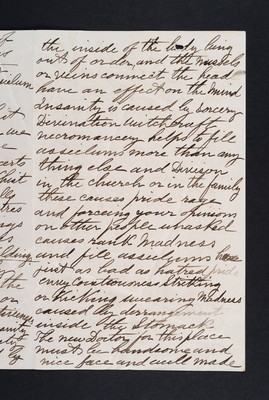 the inside of the body being
out of order and the mussels
or veins connect the head
have an effect on the mind
Insanity is caused by sorcery
Divination Witchcraft
necromancy helps to fill
asseilums more than any
thing else and Division
in the church or in the family
these causes pride rage
and forceing your opinions
on other people unasked
causes rank madness
and fill asseilums hase
just as bad as hatred pride
envy Covitiousness Striking
or Kicking swearing Madness
caused by derrangement
inside the Stomack
The new Doctor for this place
must be handsome and
nice face and well made